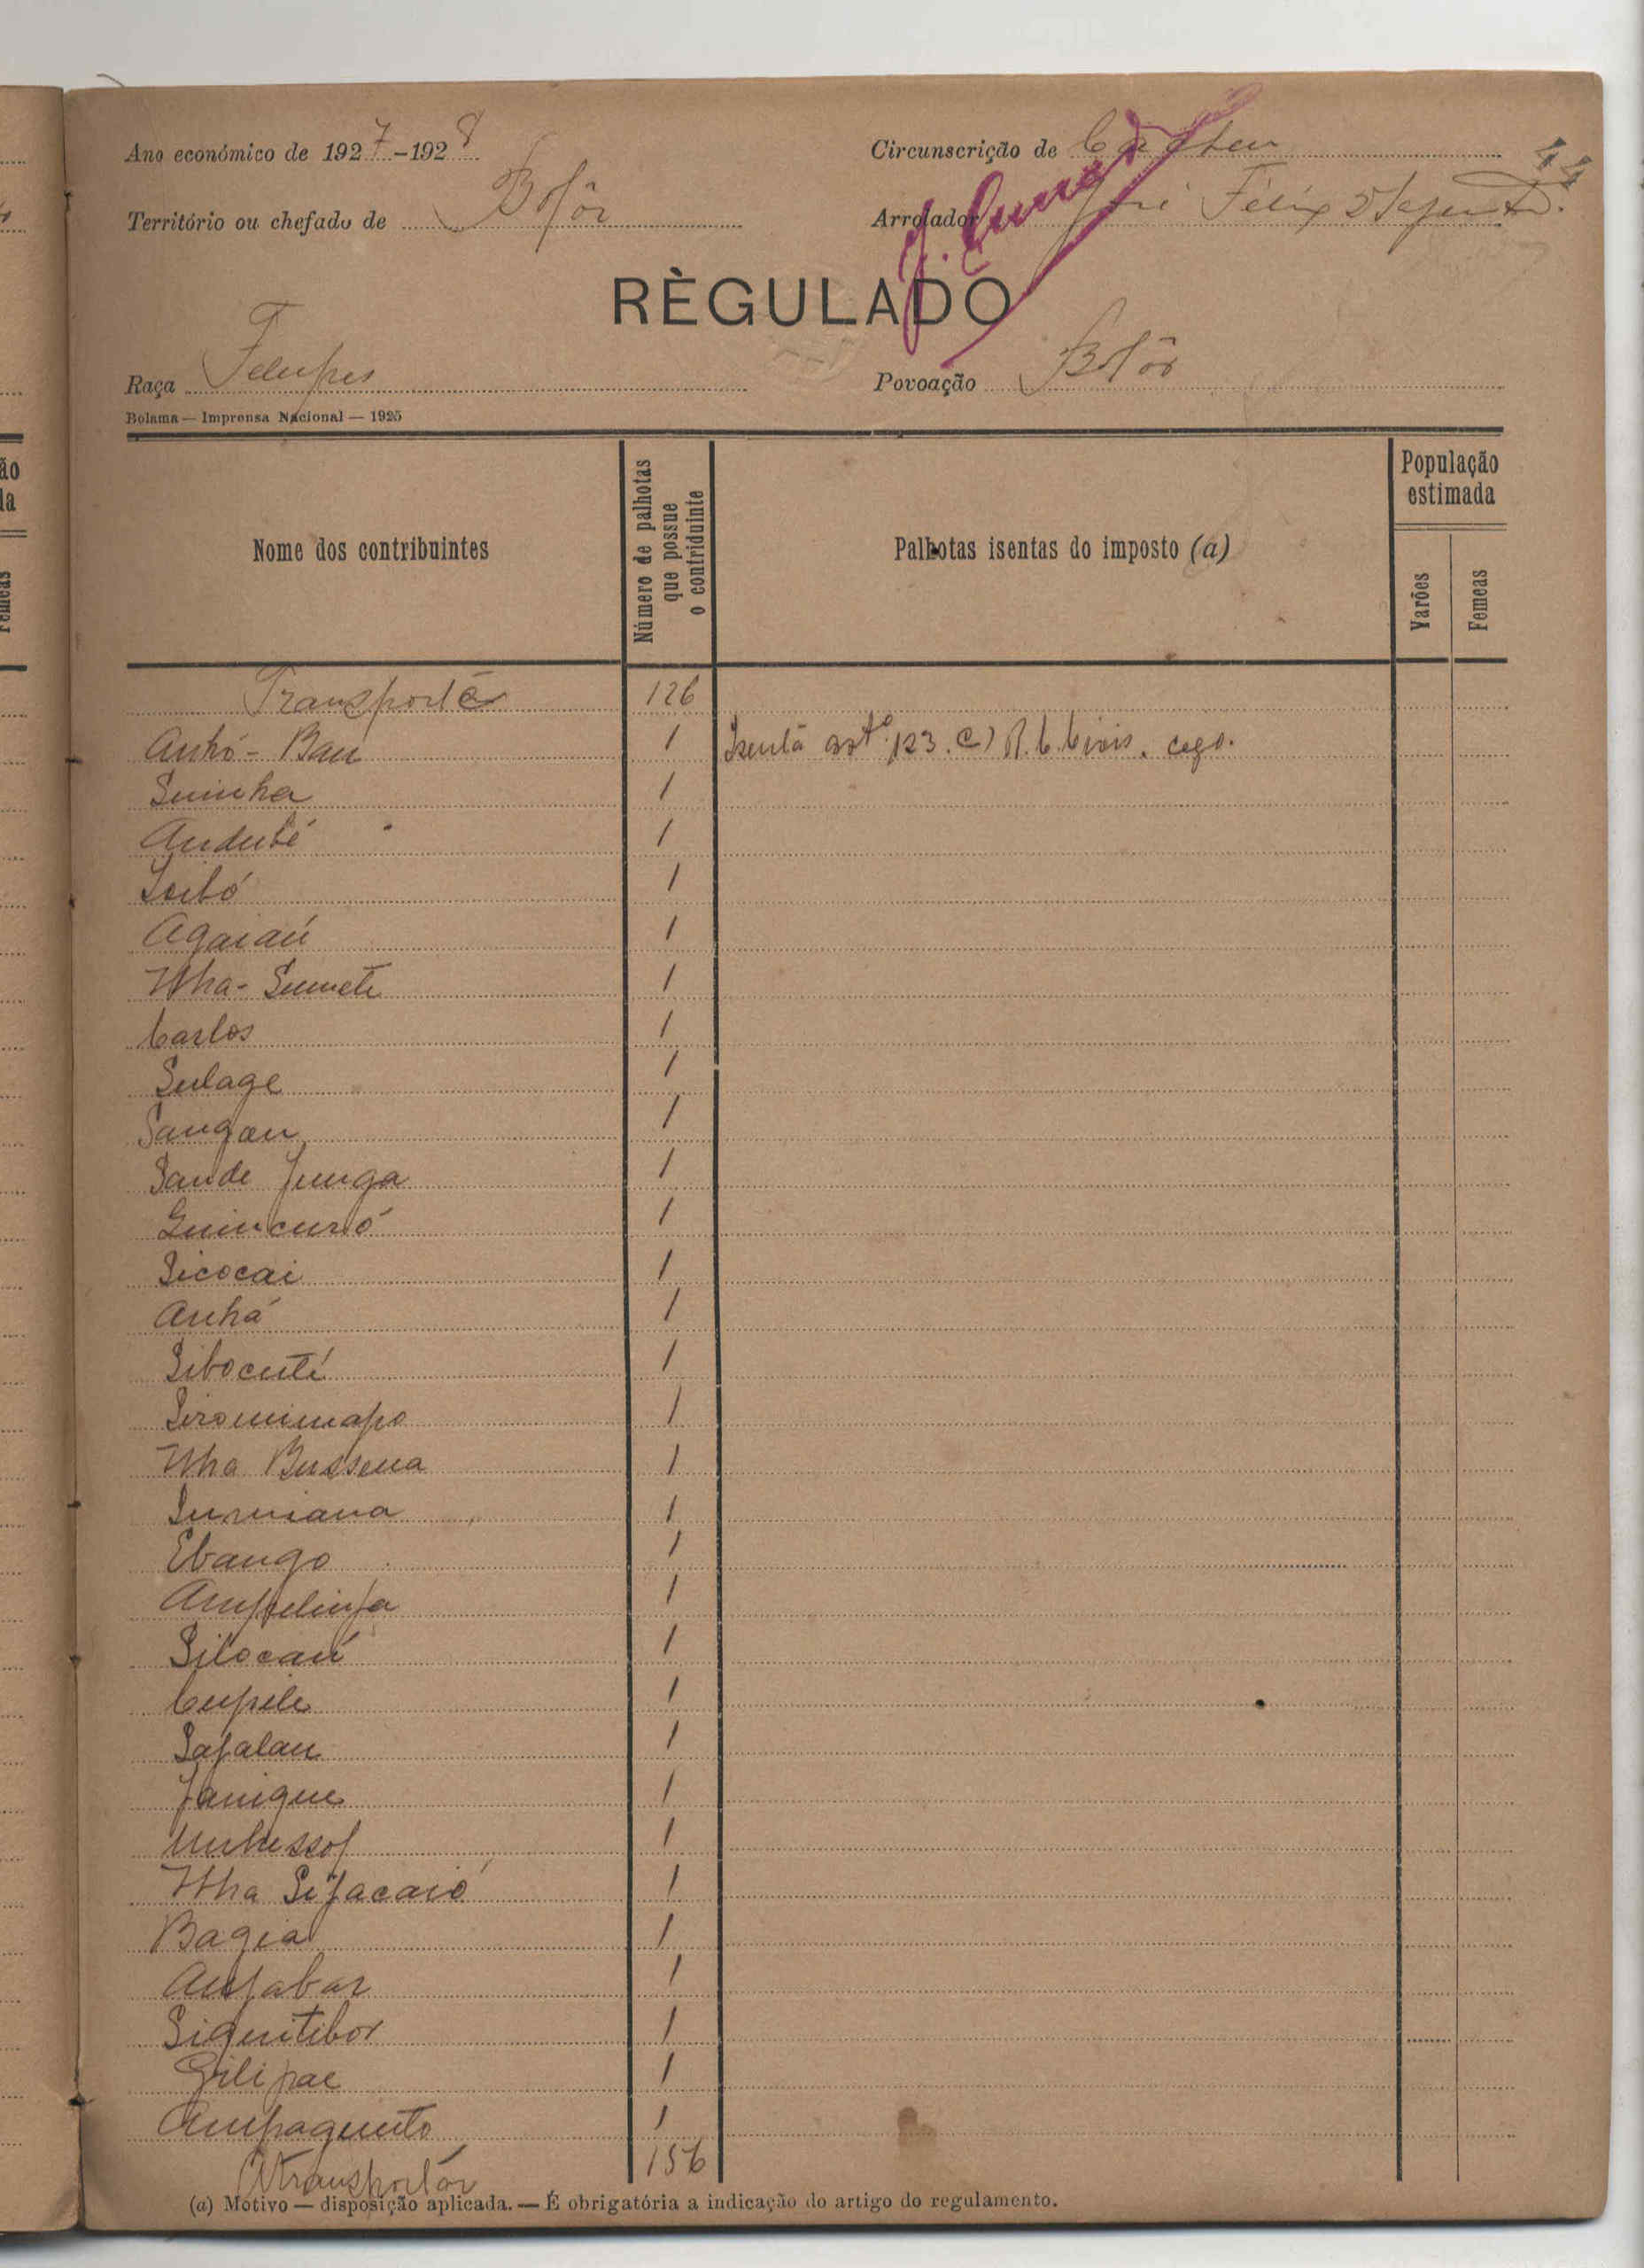 Ano económico de 1927-1928
Circunscrição de Cacheu
44
Território ou chefado de Bolôr
Arrolador José Félix
RÈGULADO
Raça Felupes
Povoação Bolôr
Bolama — Imprensa Nacional — 1925
Nome dos contribuintes
Número de palhotas que possue o contriduinte
Palhotas isentas do imposto (a)
População estimada
Varões
Femeas
Transporte 126
Anhó-Bau 1 Isenta artº 123. C) R. C. Civis. cego.
Suinha 1
Andubé 1
1
Agaiaú 1
Nha-Sumete 1
Carlos 1
Sulage 1
Sangau 1
Sande Junga 1
Guincuró 1
Sicocai 1
Anhá 1
Sibocuté 1
1
Nha Bussena 1
Surmana 1
Ebango 1
1
Silocaú 1
Cupele 1
Safalau 1
Janique 1
1
Nha Sijacaió 1
Bagia 1
Anjabar 1
Siquitibor 1
Gilipae 1
Ampaquinto 1
A transportar 156
(a) Motivo — disposição aplicada. — É obrigatória a indicação do artigo do regulamento.